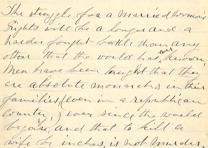 The struggle for a married woman's
rights will be a longer and a
harder fought battle than any
other that the world has ever known.
Men have been taught that they
are absolute monarchs in their
families, (even in a republican
country,) ever since the world
began, and that to kill a
wife by inches, is not murder.